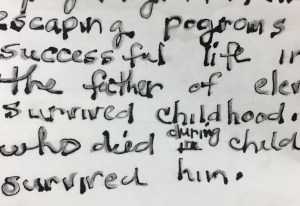 escaping pogroms
successful life in
the father of elev
survived childhood.
who did during child
survived him.